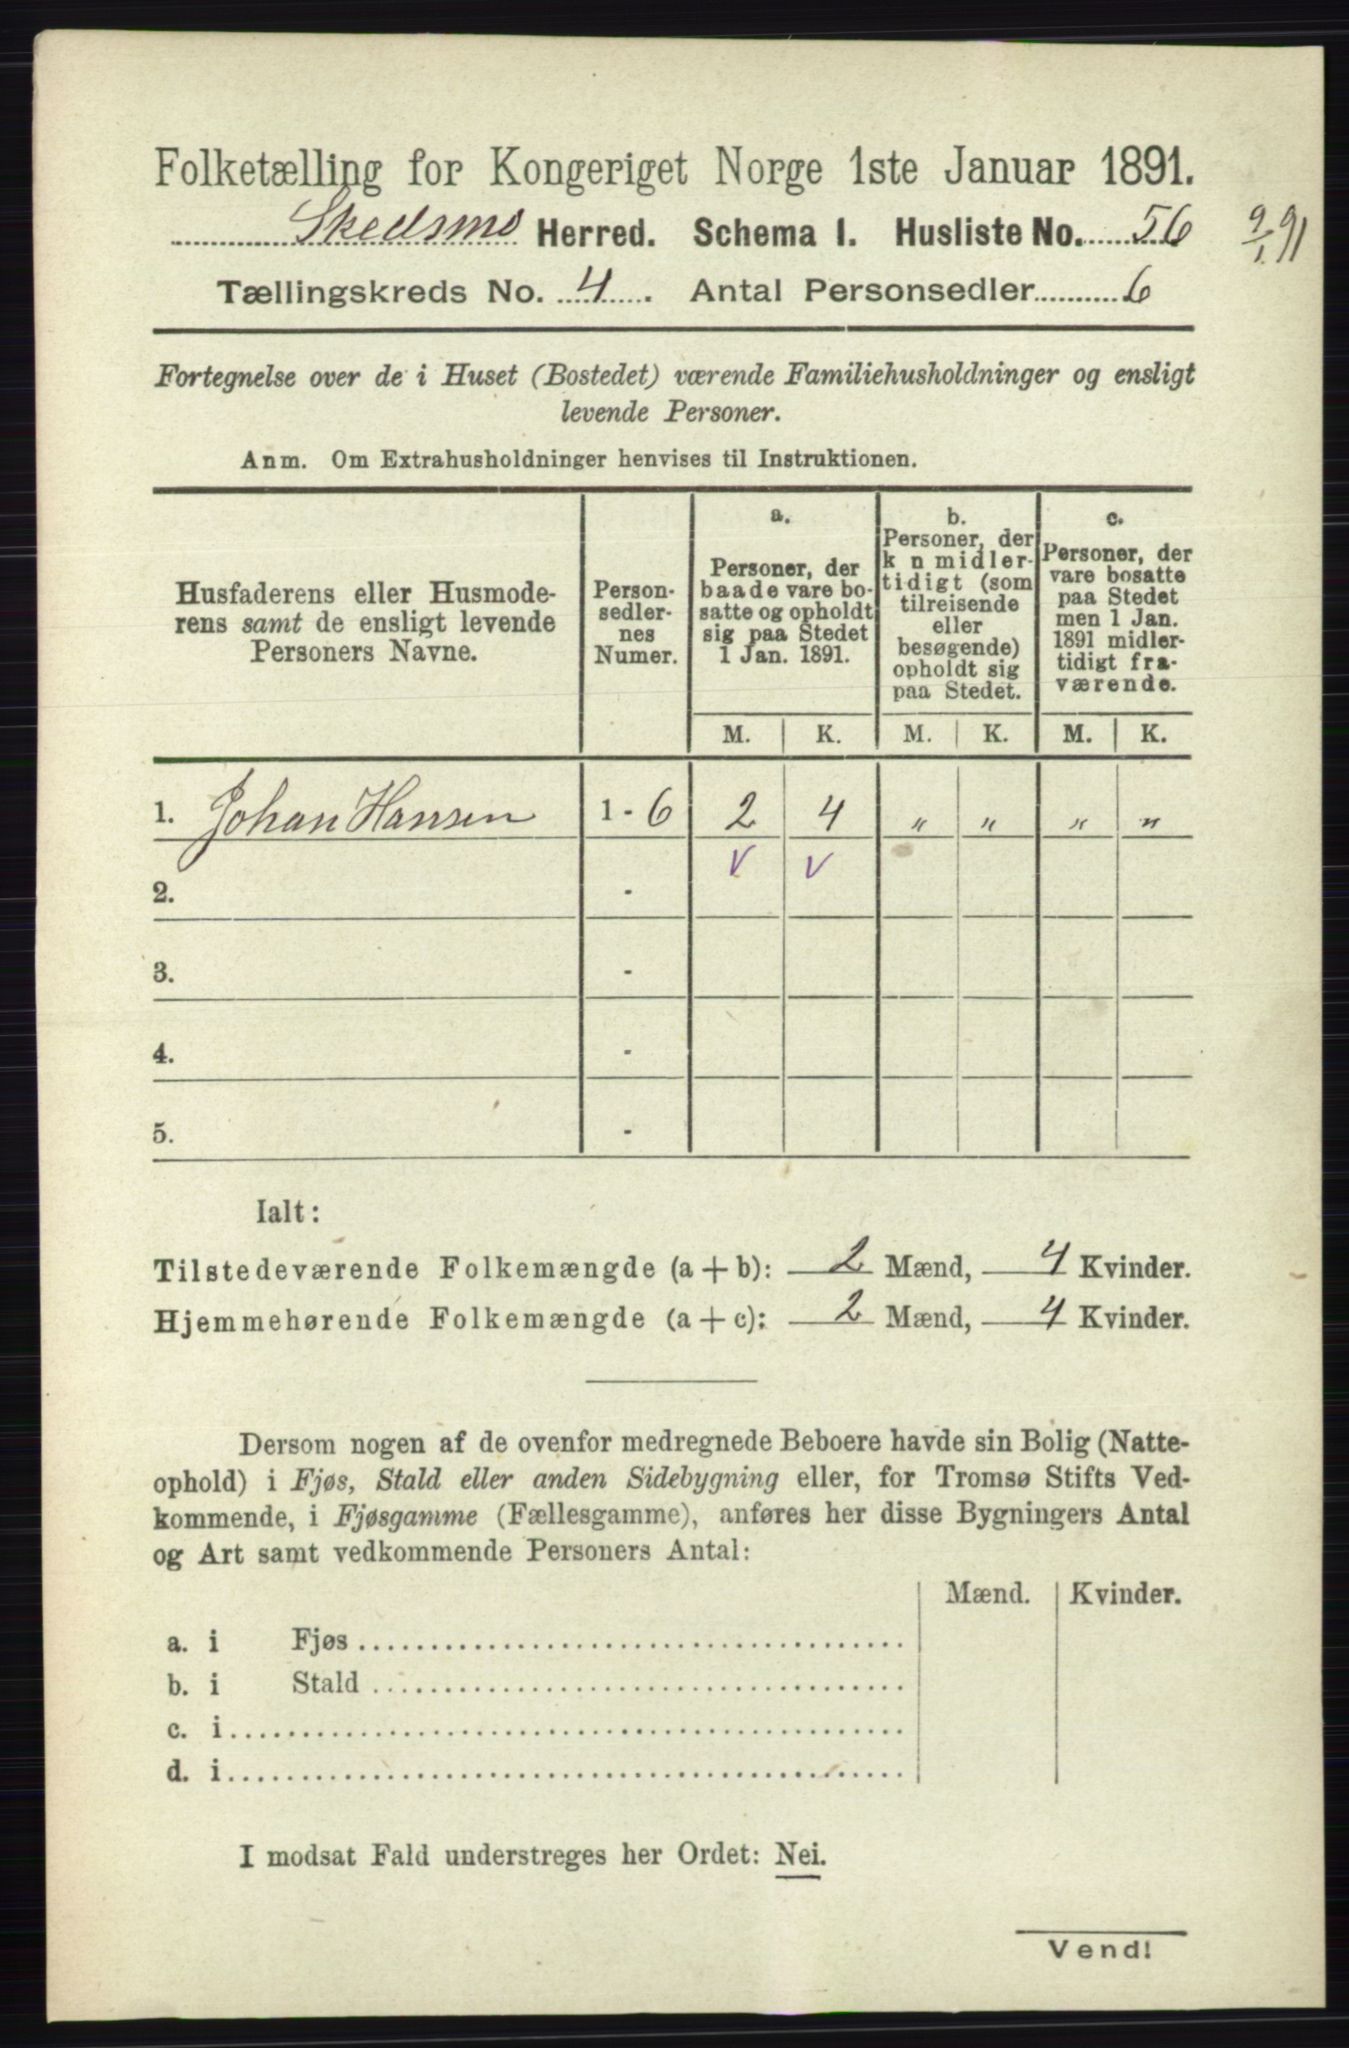 Folketælling for Kongeriget Norge 1ste Januar 1891.
Skedsmo Herred. Schema I. Husliste No. 56 9/1 91
Tællingskreds No. 4. Antal Personsedler 6
Fortegnelse over de i Huset (Bostedet) værende Familiehusholdninger og ensligt
levende Personer.
Anm. Om Extrahusholdninger henvises til Instruktionen.
Husfaderens eller Husmode-
rens samt de ensligt levende
Personers Navne.
Person-
sedler-
nes
Numer.
a.
Personer, der
baade vare bo-
satte og opholdt
sig paa Stedet
1 Jan. 1891.
b.
Personer, der
k n midler-
tidigt (som
tilreisende
eller
besøgende)
opholdt sig
paa Stedet.
c.
Personer, der
vare bosatte
paa Stedet
men 1 Jan.
1891 midler-
tidigt fra-
værende.
M. K. M. K. M. K.
1. Johan Hansen 1 - 6 2 4 " " " "
v v
2. -
3. -
4. -
5. -
Ialt:
Tilstedeværende Folkemængde (a + b): 2 Mænd, 4 Kvinder.
Hjemmehørende Folkemængde (a + c): 2 Mænd, 4 Kvinder.
Dersom nogen af de ovenfor medregnede Beboere havde sin Bolig (Natte-
ophold) i Fjøs, Stald eller anden Sidebygning eller, for Tromsø Stifts Ved-
kommende, i Fjøsgamme (Fællesgamme), anføres her disse Bygningers Antal
og Art samt vedkommende Personers Antal:
Mænd. Kvinder.
a. i Fjøs
b. i Stald
c. i
d. i
I modsat Fald understreges her Ordet: Nei.
Vend!